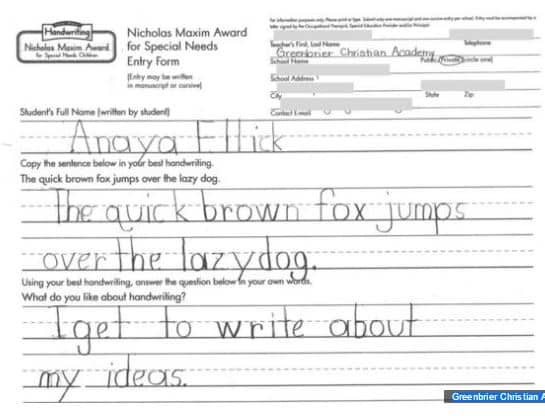 Handwriting
Nicholas Maxim Award
for Special Needs Children
Nicholas Maxim Award
for Special Needs
Entry Form
(Entry may be written
in manuscript or cursive)
For information purposes only. Please print or type. Submit only one manuscript and one cursive entry per school. Entry must be accompanied by a
letter signed by the Occupational Therapist, Special Education Provider and/or Principal.
Teacher's First, Last Name Telephone
Greenbrier Christian Academy
School Name Public/Private (circle one)
School Address
City State Zip
Contact E-mail
Student's Full Name (written by student)
Anaya Ellick
Copy the sentence below in your best handwriting.
The quick brown fox jumps over the lazy dog.
The quick brown fox jumps
over the lazy dog.
Using your best handwriting, answer the question below in your own words.
What do you like about handwriting?
I get to write about
my ideas.
Greenbrier Christian A